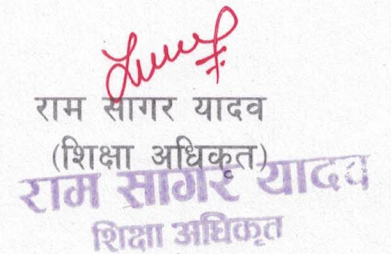 राम सागर यादव
(शिक्षा अधिकृत)
राम सागर यादव
शिक्षा अधिकृत